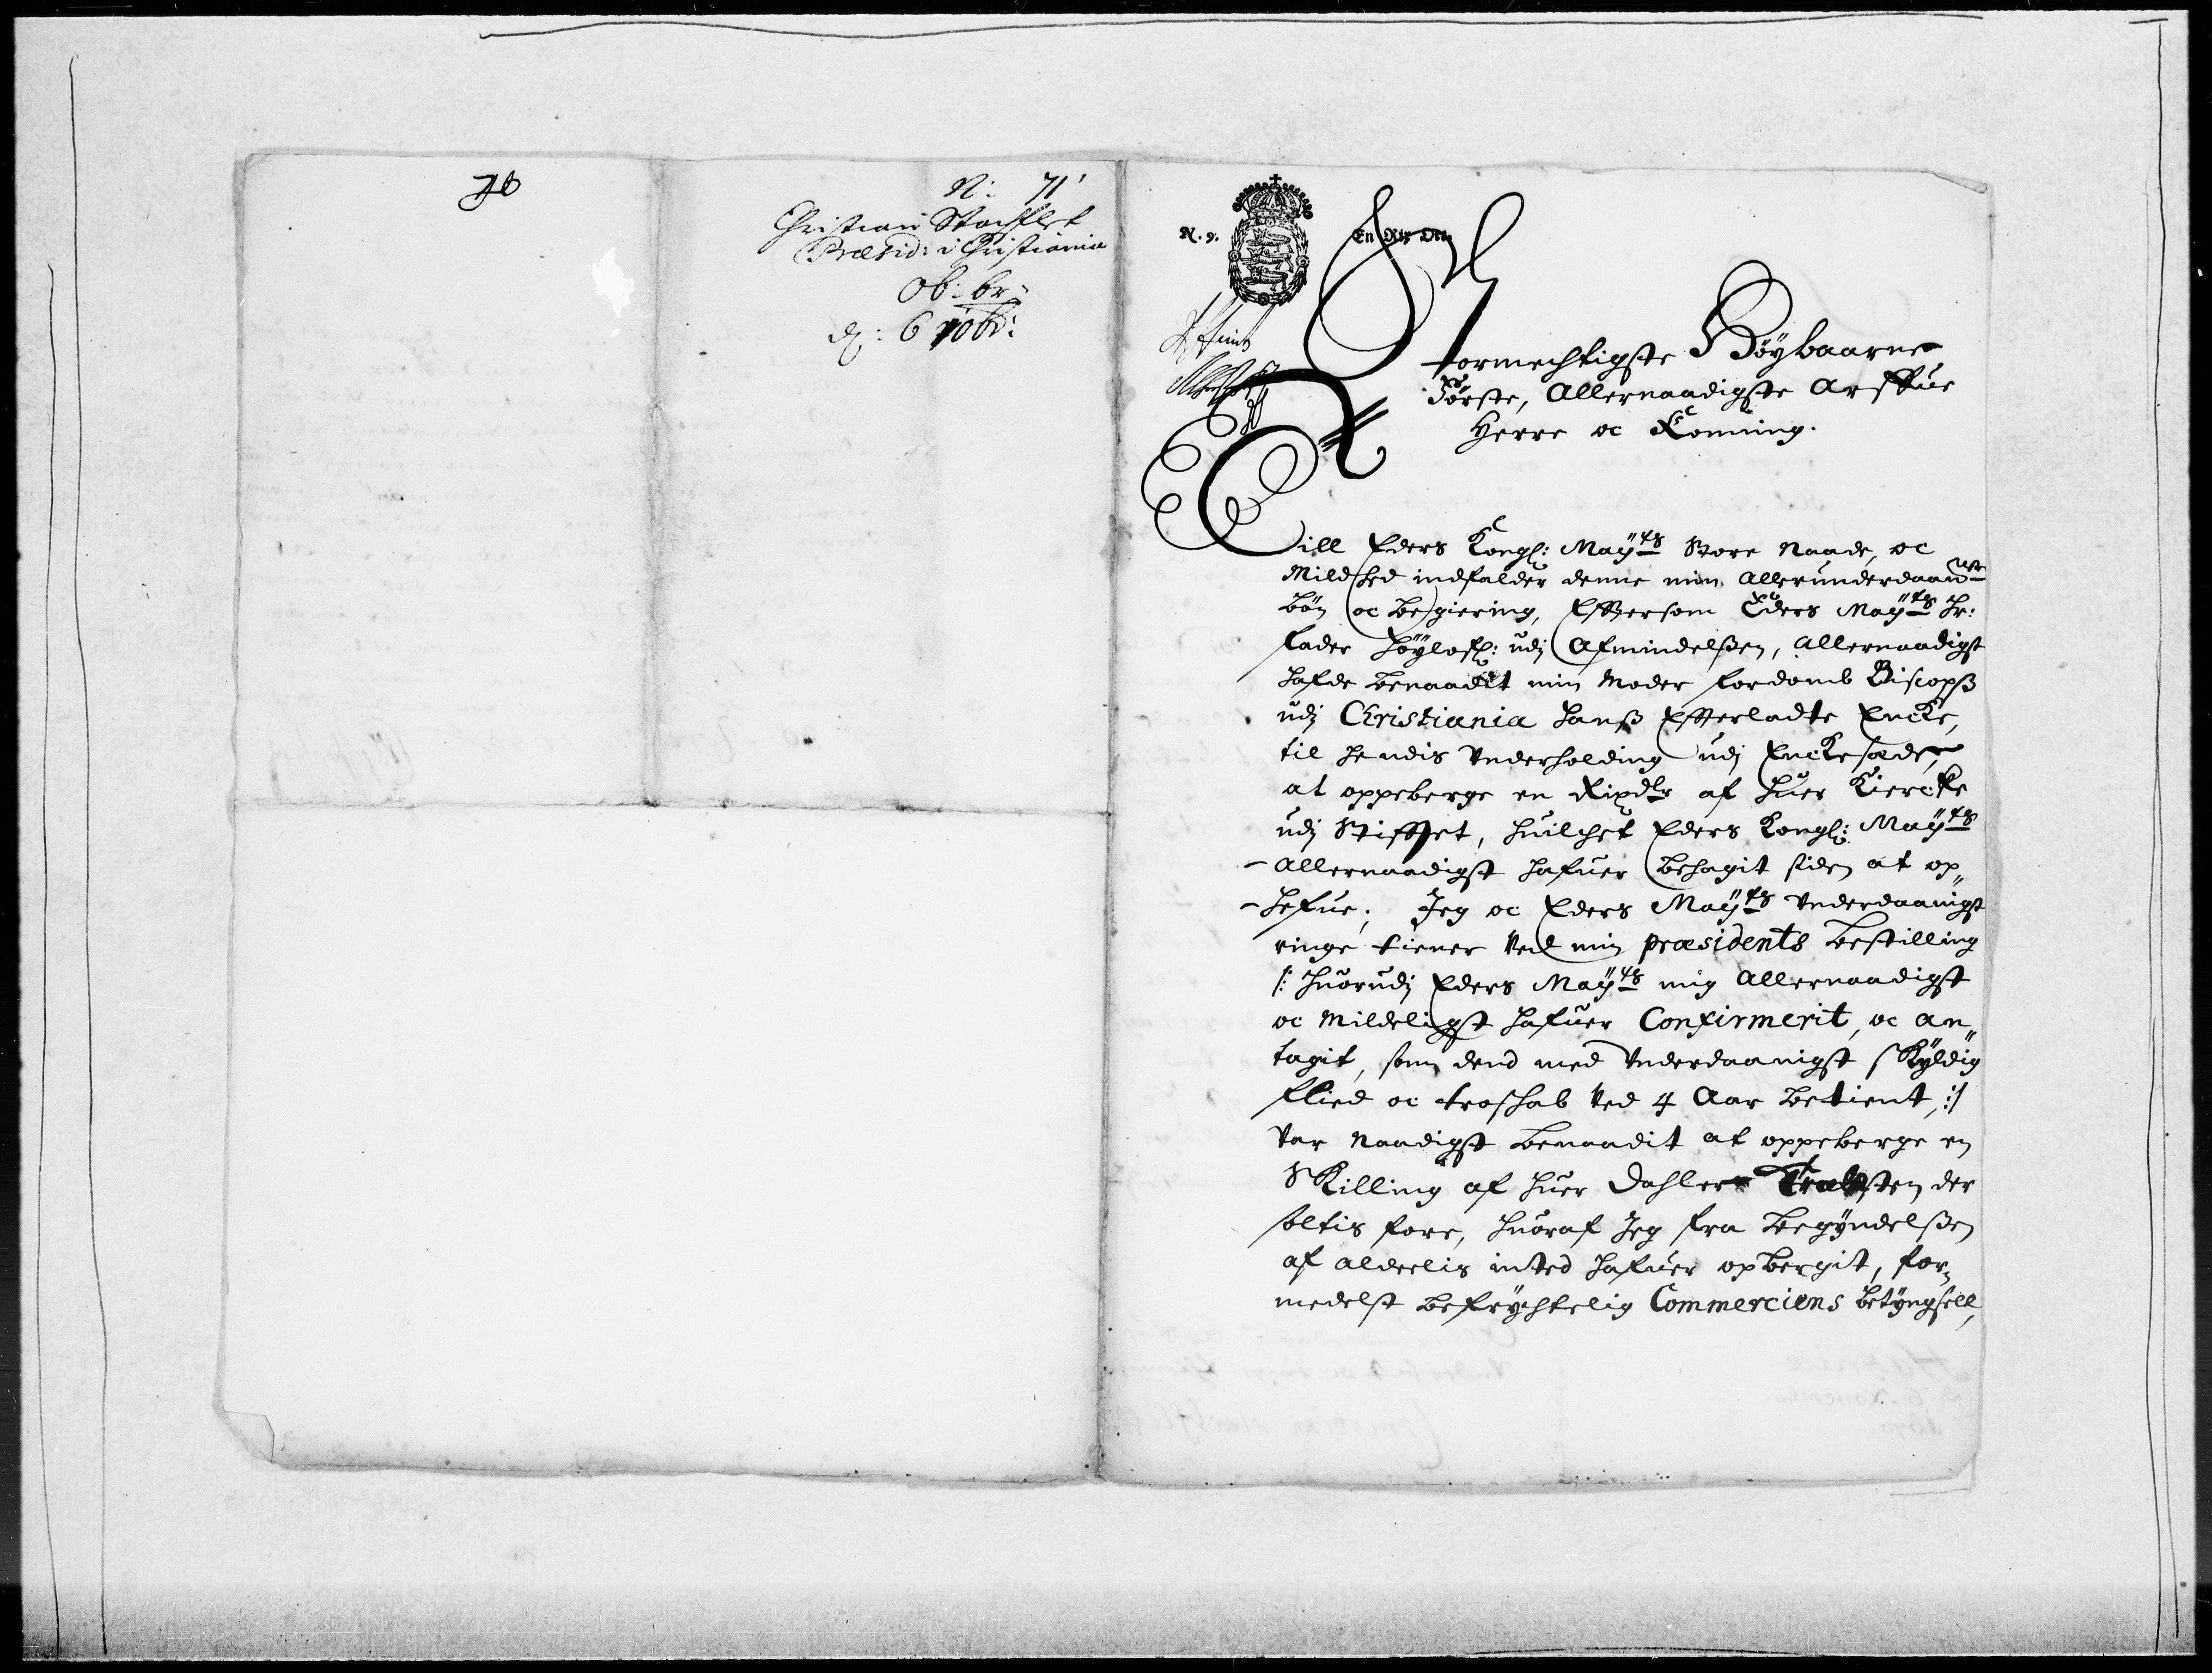 76
N: 71
Christian Stochflet
Præsid: i Christiania
Ob: br:
d: 6 9obr:
N. 9. En Rix Ort
Stormechtigste Höybaarne
Förste, Allernaadigste Arffue
Herre oc Konning.
Till Eders Kongl: Maÿts Store Naade, oc
Mildhed indfalder denne min Allerunderdaan
bön oc begiering, Efftersom Eders Maÿts Hr:
fader Höÿlofl: udj Afmindelßen, Allernaadigst
hafde benaadit min Moder fordomb Biscopß
udj Christiania Hanß Efterladte Encke,
til hendis Underholding udj Enckesæde,
at oppeberge en Rixdlr af huer Kiercke
udj Stifftet, huilchet Eders Kongl: Maÿts
Allernaadigst hafuer behagit siden at op„
hefue; Jeg oc Eders Maÿts Underdaanigst
ringe tiener Ved min præsidents bestilling
/: huorudj Eders Maÿts mig Allernaadigst
oc Mildeligst hafuer Confirmerit, oc an„
tagit, som dend med Underdaanigst skÿldig
fliid oc troskab Ved 4 Aar betient, :/
Var Naadigst benaadit at oppeberge en
Skilling af huer Dahler Trælasten der
soltis fore, huoraf Jeg fra begÿndelßen
af alderlis inted hafuer opbergit, for„
medelst befrÿchtelig Commerciens betÿngsell,